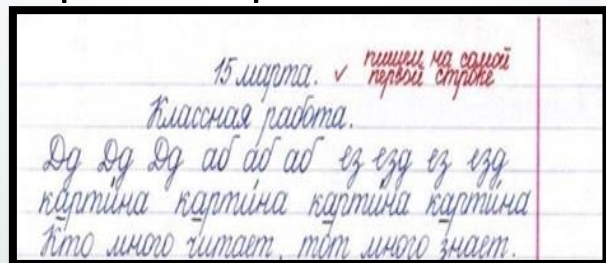 15 марта. ✓ пишем на самой
первой строке
Классная работа.
Дд Дд Дд аб аб аб ез езд ез езд
карти́на карти́на карти́на карти́на
Кто много читает, тот много знает.